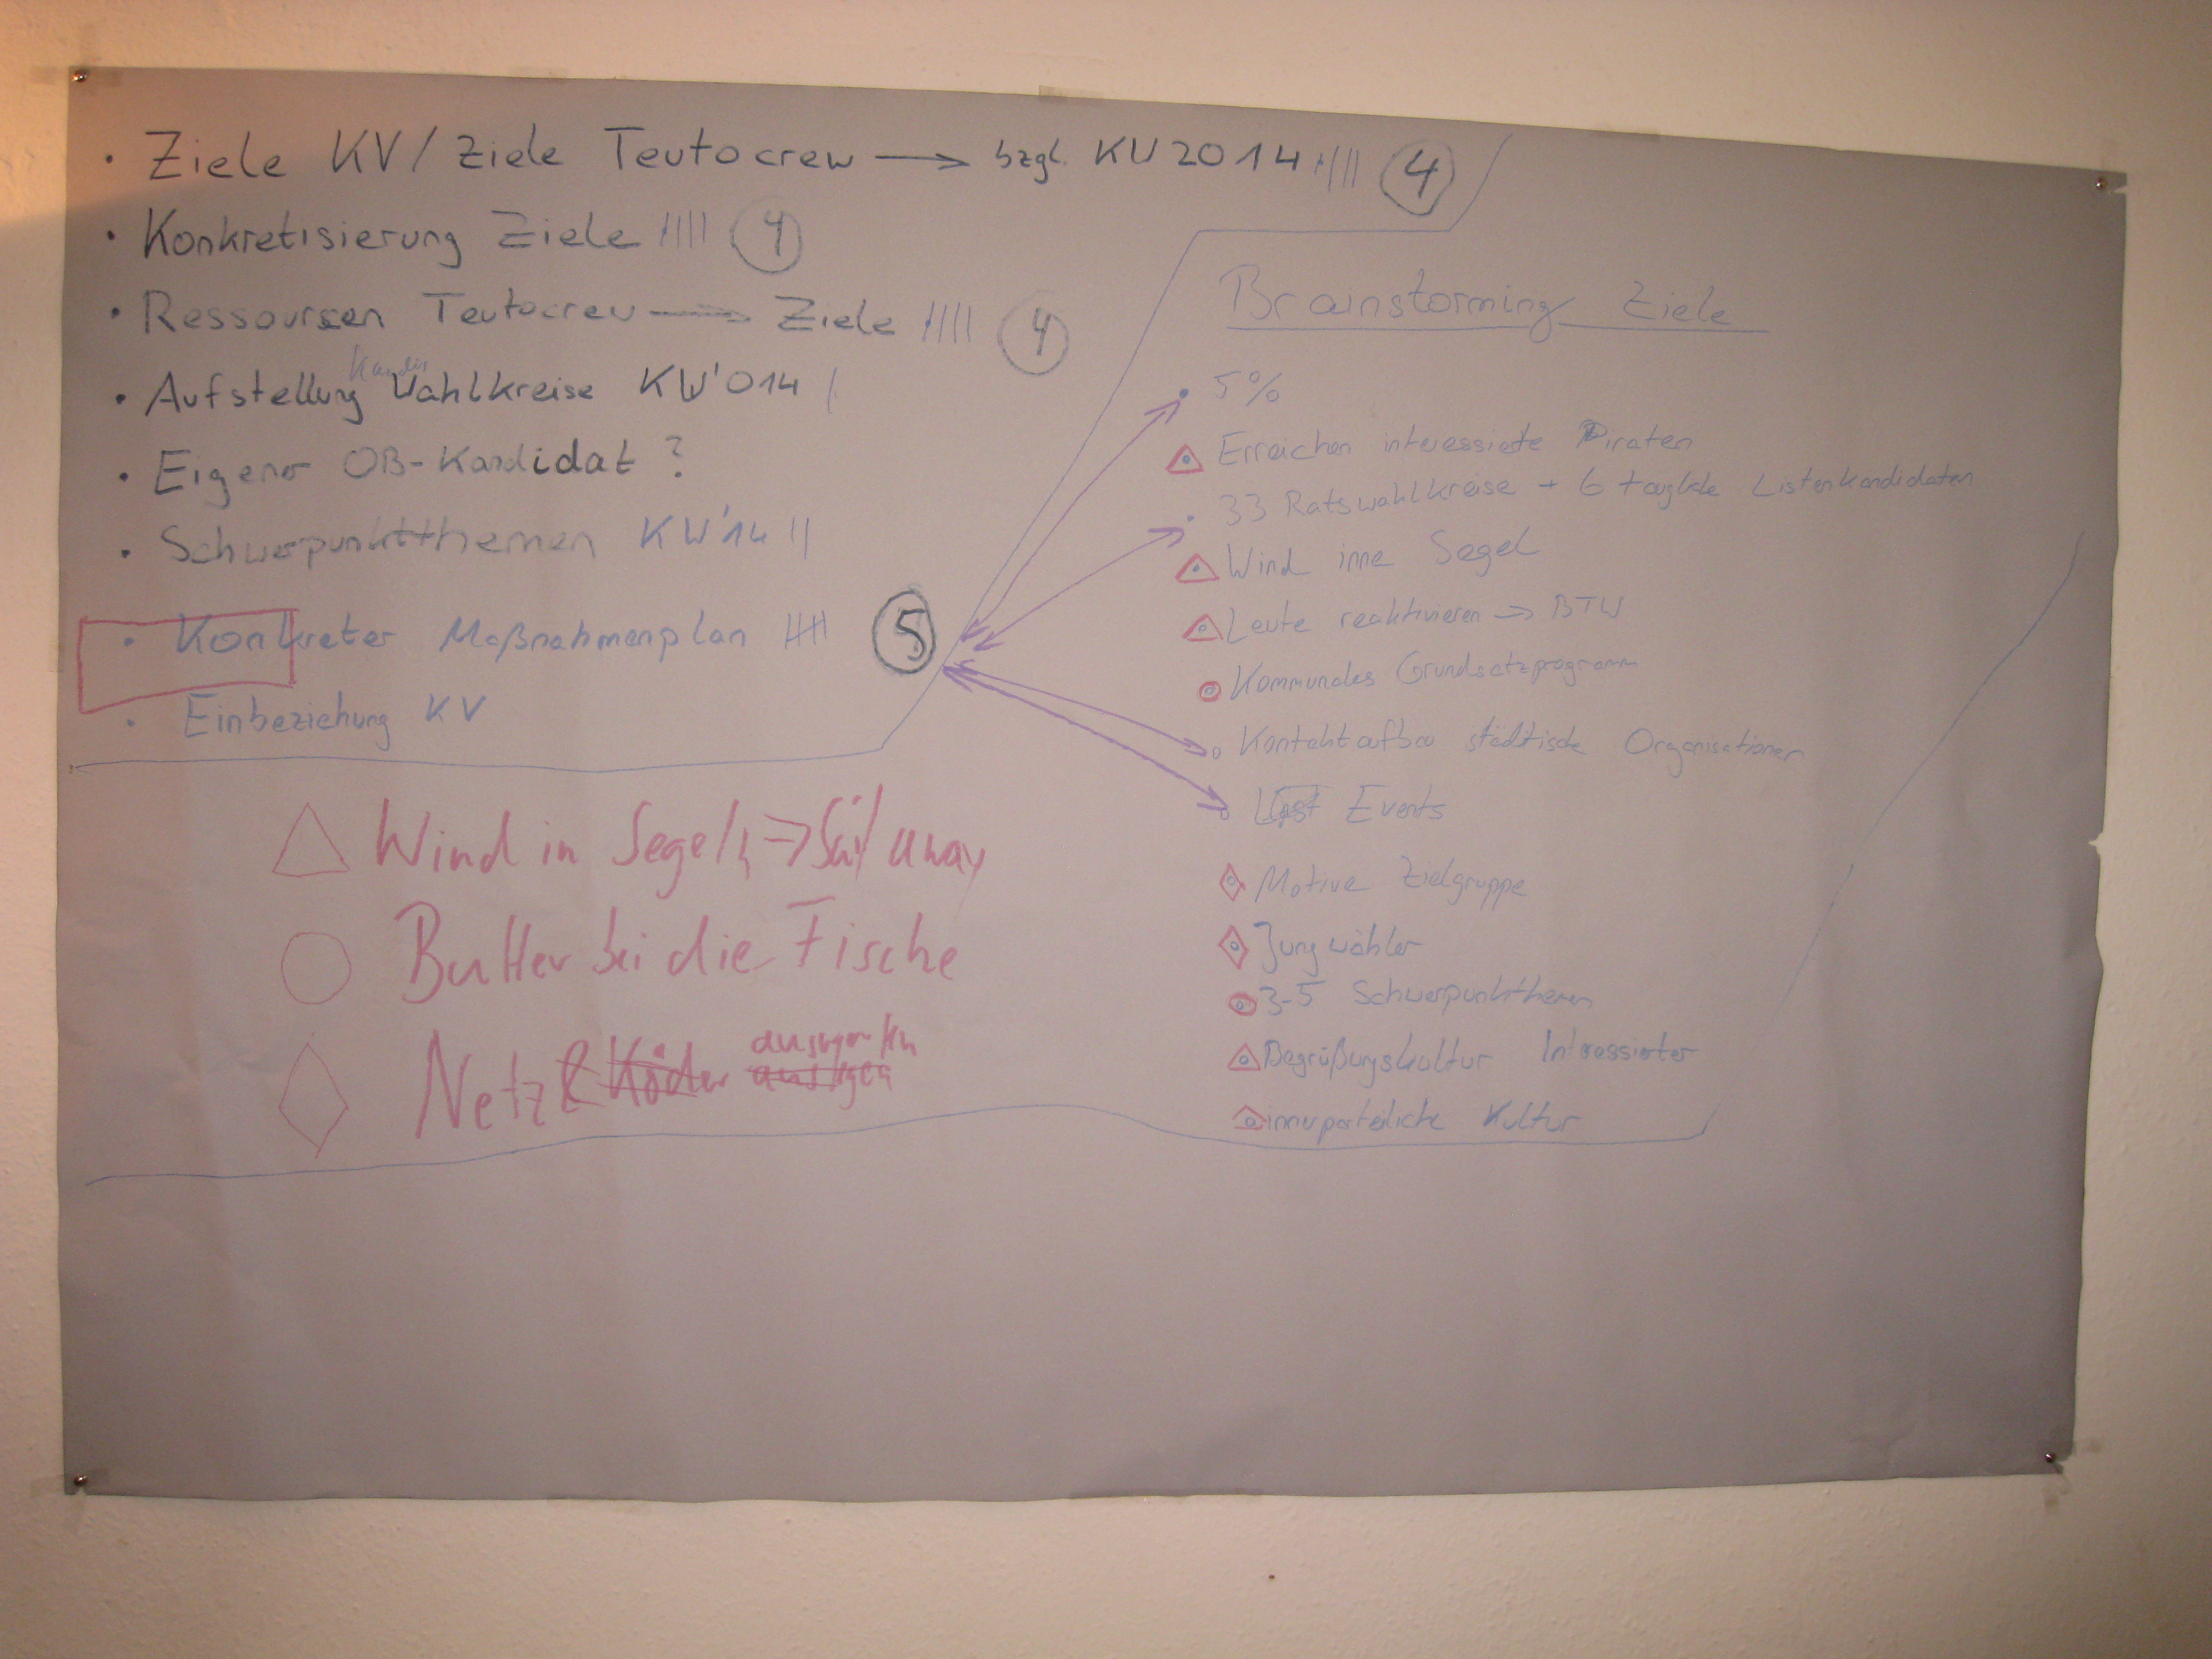 · Ziele KV / Ziele Teutocrew → bzgl. KW 2014 |||| 4
· Konkretisierung Ziele |||| 4
· Ressourcen Teutocrew → Ziele |||| 4
Kandis
· Aufstellung Wahlkreise KW'014 |
· Eigener OB-Kandidat ?
· Schwerpunktthemen KW'14 ||
· Konkreter Maßnahmenplan |||| 5
· Einbeziehung KV
Wind in Segeln ⇒ Sail away
Butter bei die Fische
Netz & Köder auswerfen
Brainstorming Ziele
· 5%
Erreichen interessierte Piraten
· 33 Ratswahlkreise + 6 taugliche Listenkandidaten
Wind inne Segel
Leute reaktivieren → BTW
Kommunales Grundsatzprogramm
Kontaktaufbau städtische Organisationen
Events
Motive Zielgruppe
Jungwähler
3-5 Schwerpunktthemen
Begrüßungskultur Interessierter
innerparteiliche Kultur